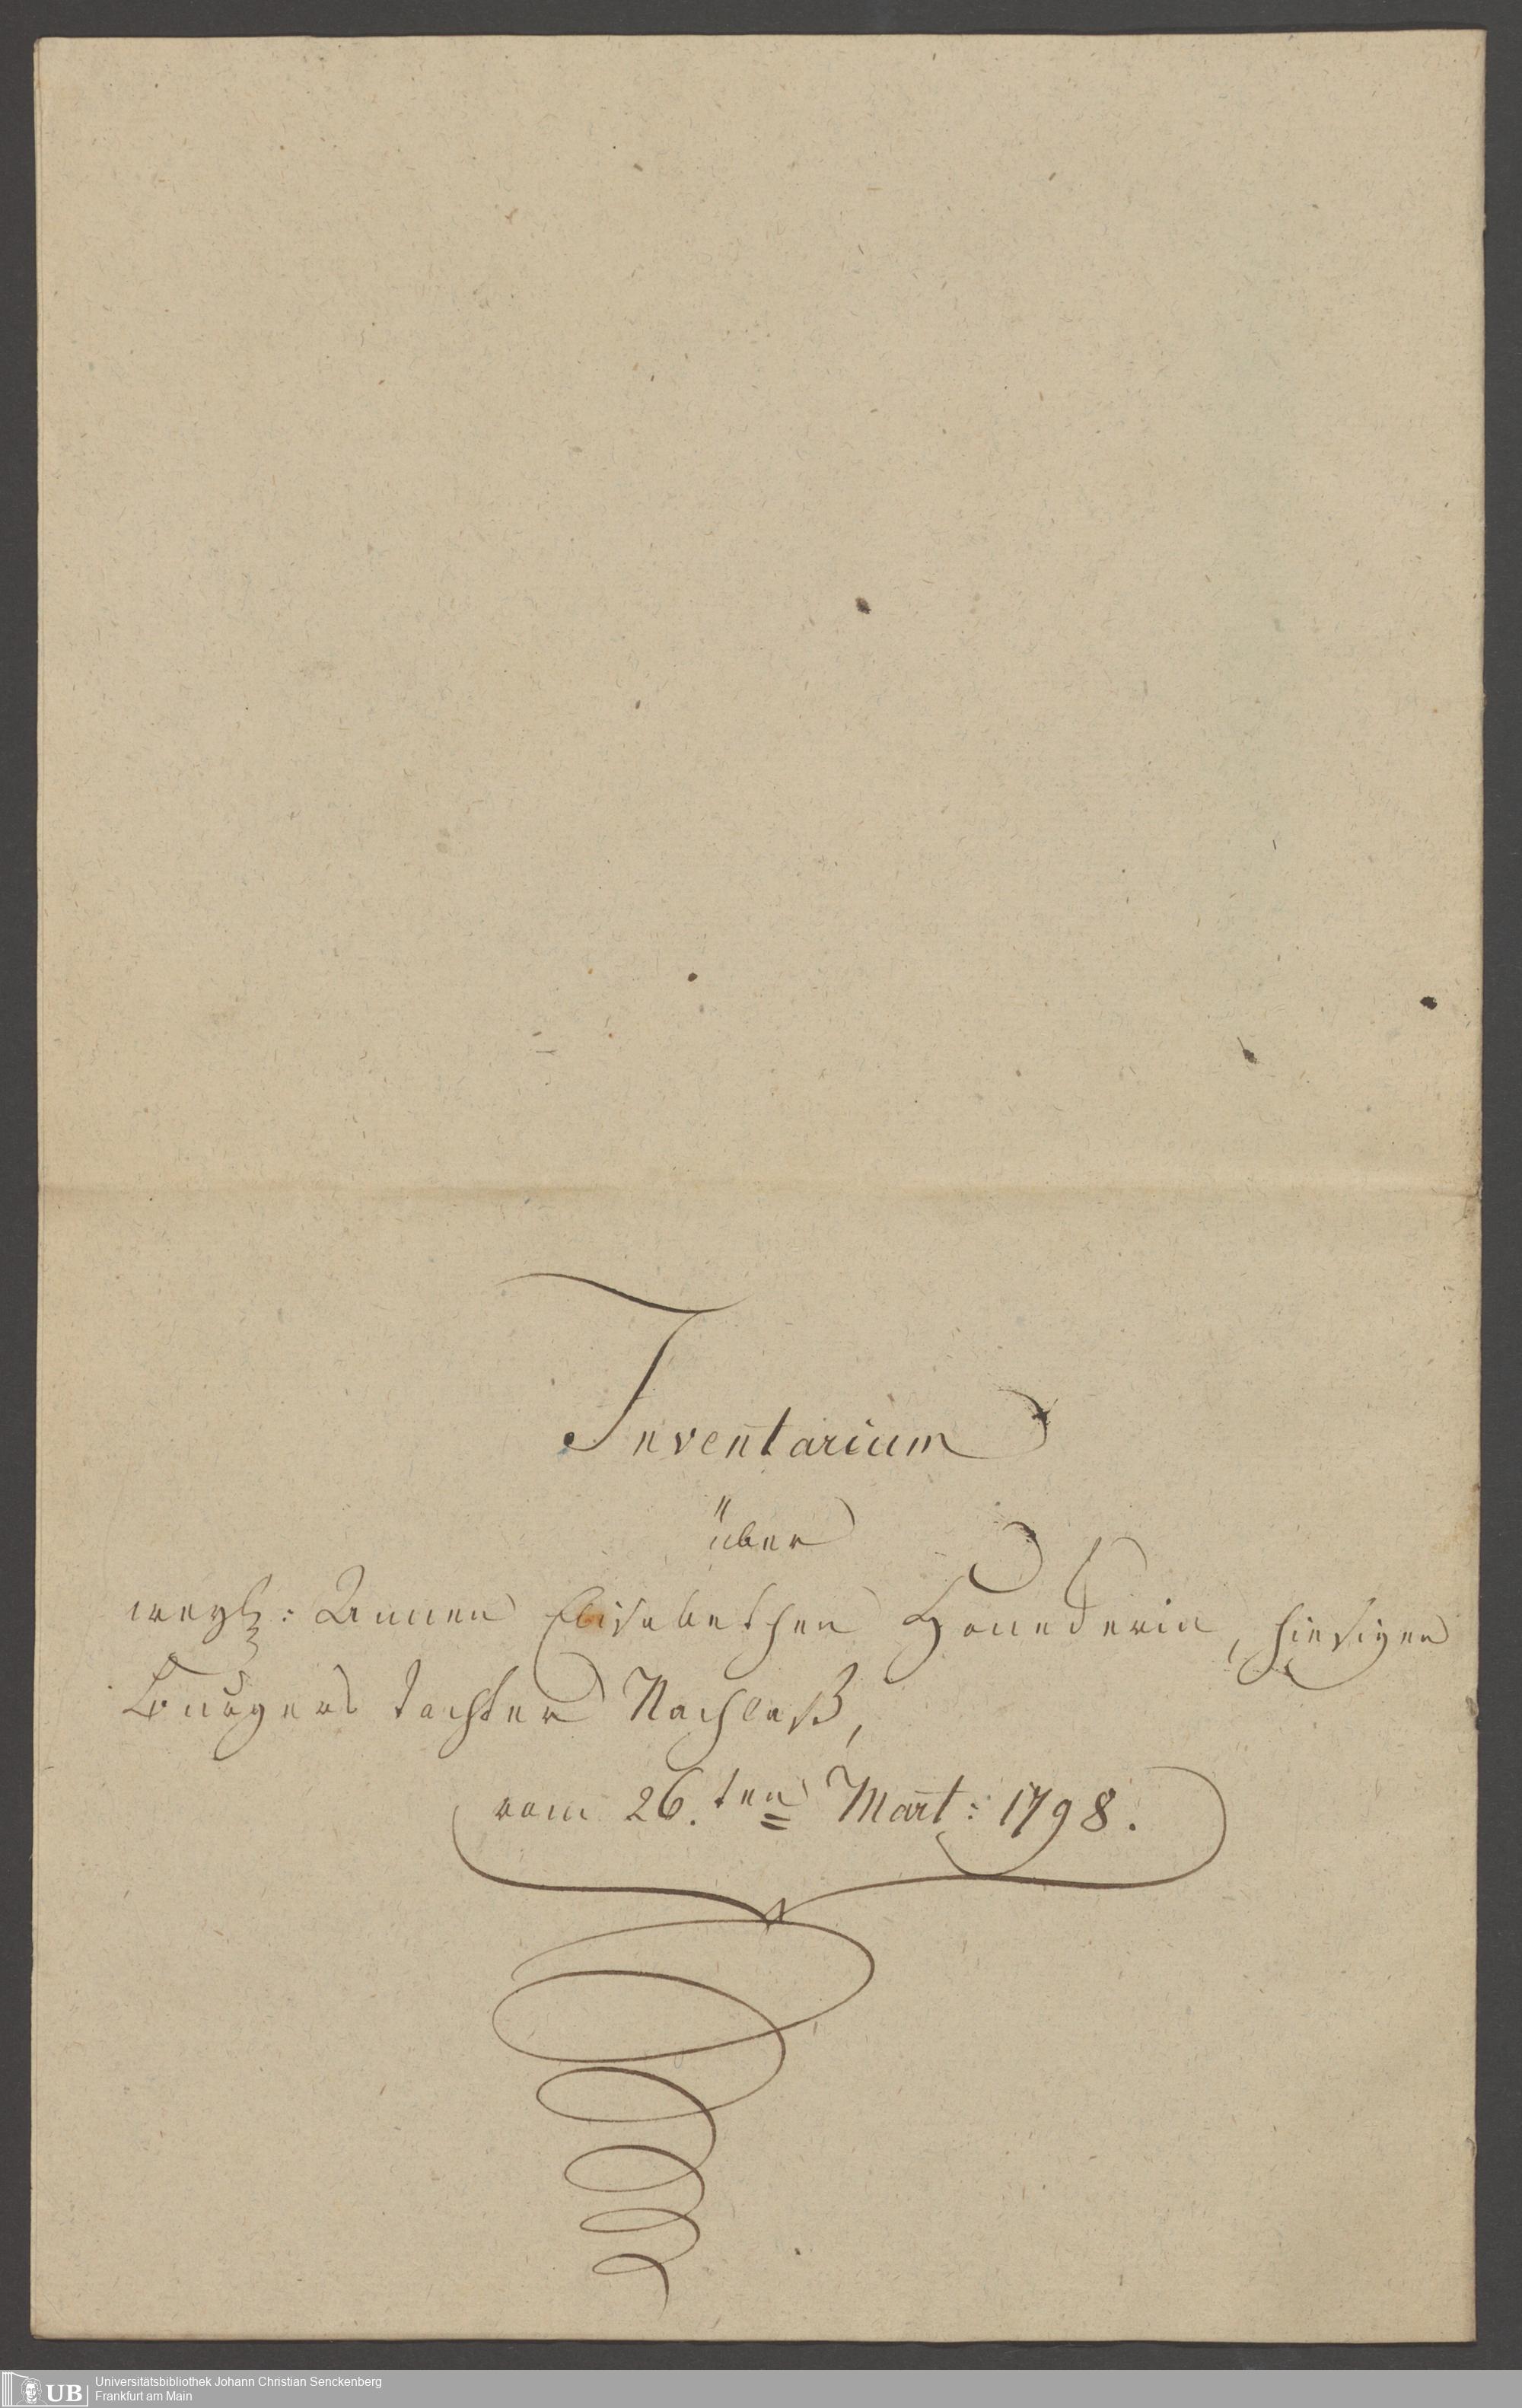 Inventarium
über
weyl: Annen Elisabethen, hiesigen
Burgers tochter Nachlaß,
vom 26.ten Mart: 1798.
UB
Universitätsbibliothek Johann Christian Senckenberg
Frankfurt am Main